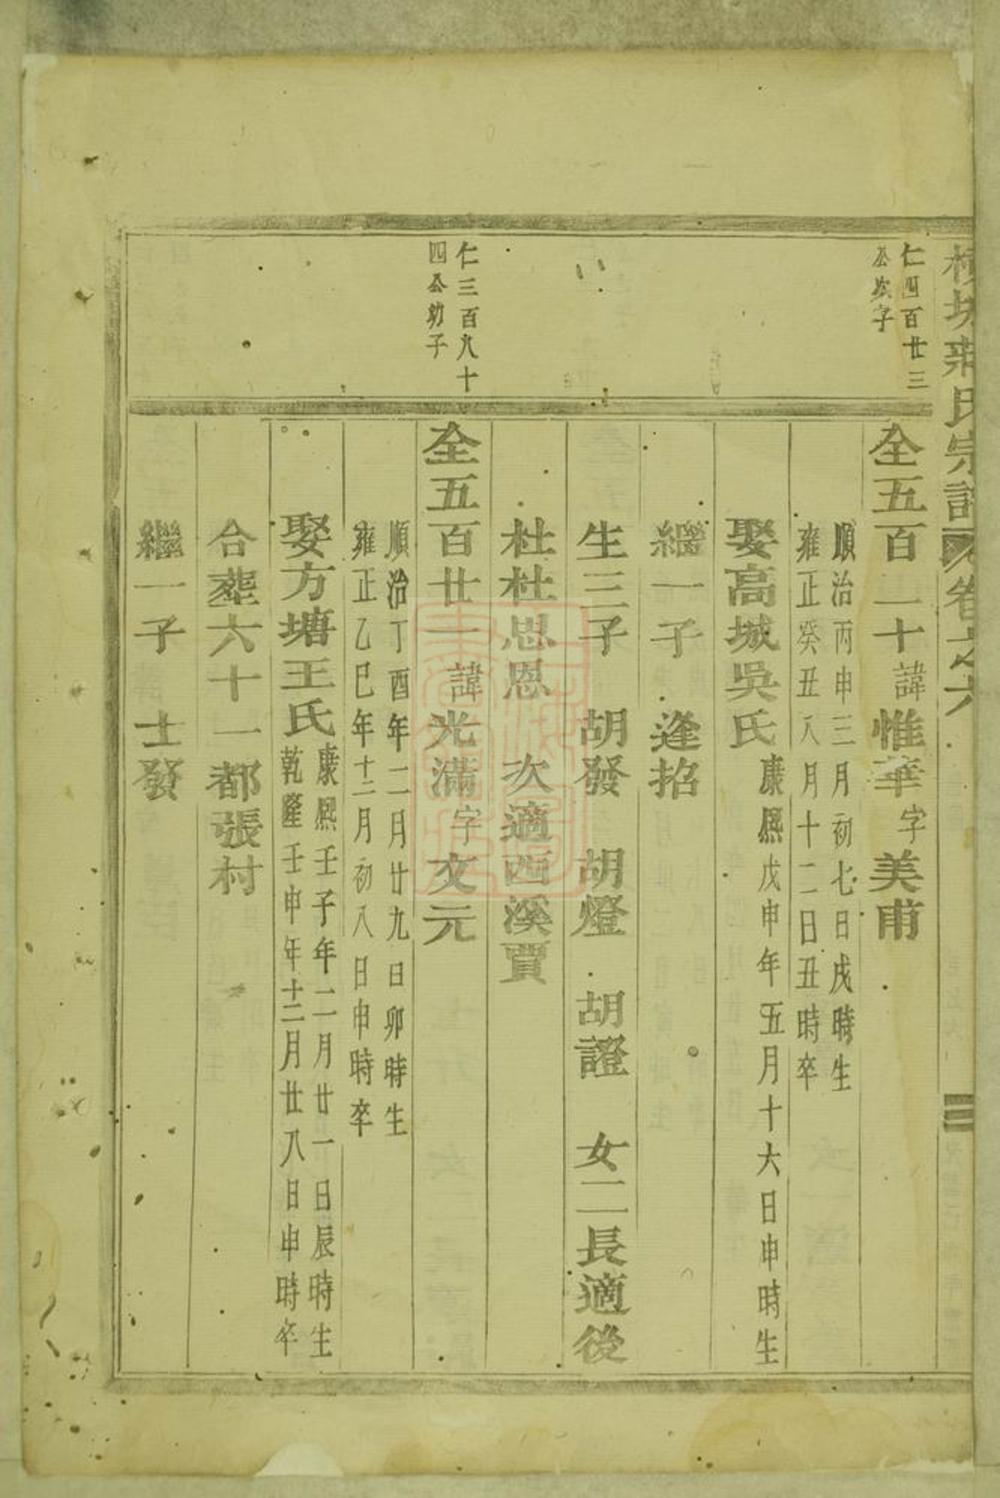 氏宗譜 卷之六
仁四百廿三
公次子
全五百一十諱惟華字美甫
順治丙申三月初七日戌時生
雍正癸丑八月十二日丑時卒
娶高城吳氏
康熙戊申年五月十六日申時生
繼一子 逢招
生三子 胡發 胡燈 胡證 女二長適後
杜杜思恩 次適西溪賈
仁三百八十
四公幼子
全五百廿一諱光滿字文元
順治丁酉年二月廿九日卯時生
雍正乙巳年十二月初八日申時卒
娶方塘王氏
康熙壬子年二月廿一日辰時生
乾隆壬申年十二月廿八日申時卒
合葬六十一都張村
繼一子 士發